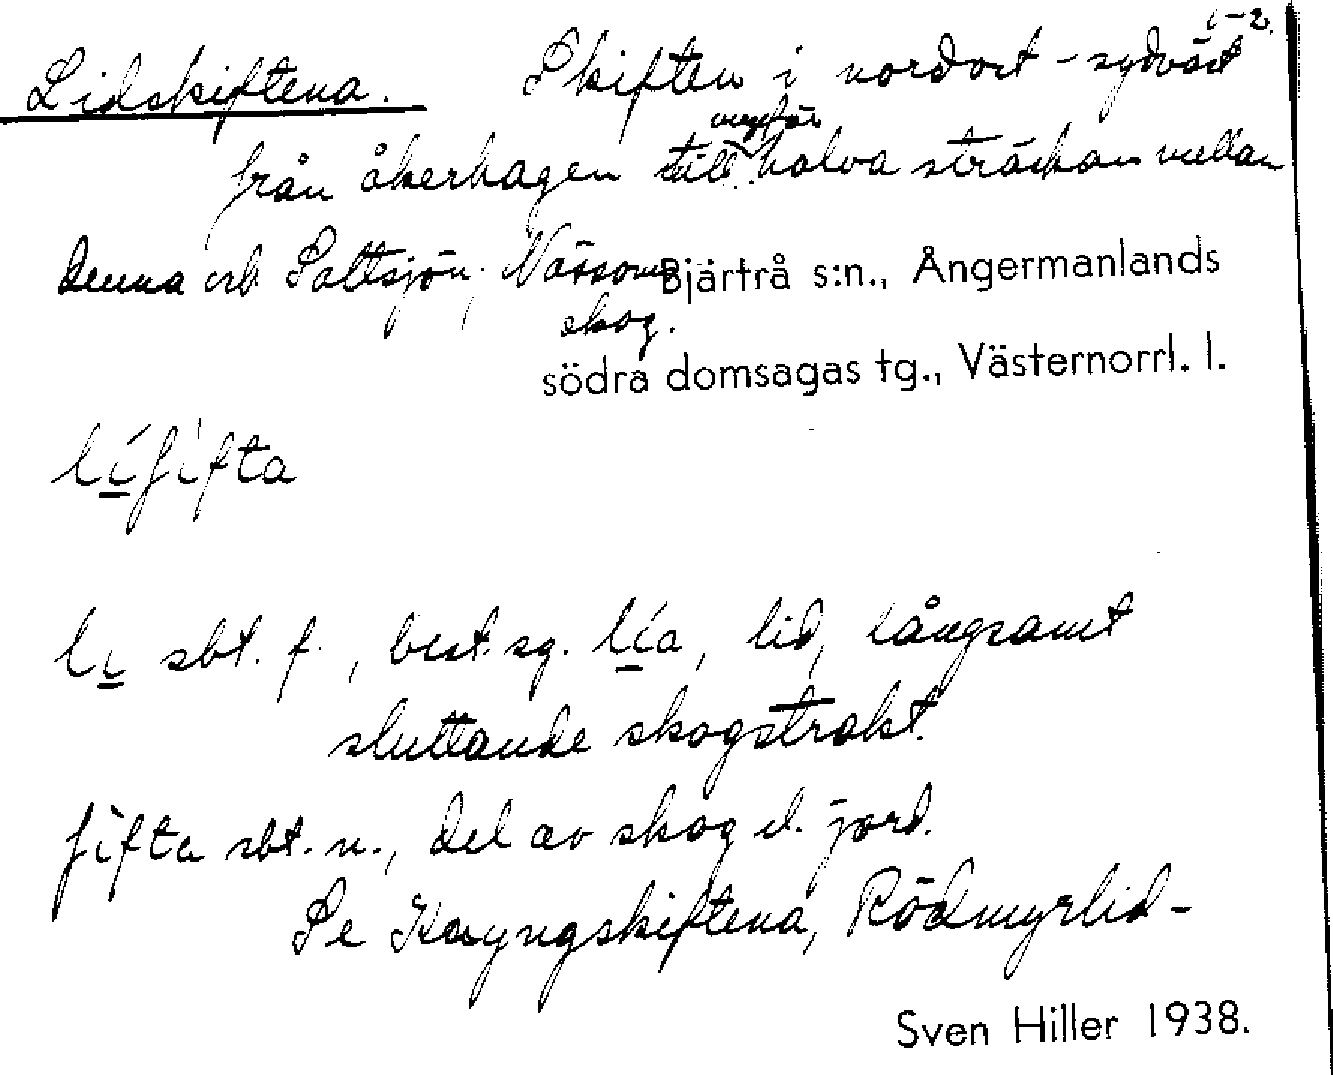 i-2.
Lidskiftena. Skiften i nordost - sydväst
ungefär
från åkerhagen till halva sträckan mellan
denna och Saltsjön; Nässoms Bjärtrå s:n., Ångermanlands
skog.
södra domsagas tg., Västernorrl. l.
líʃìfta
li sbt. f., best. sg. lía, lid, långsamt
sluttande skogstrakt.
ʃìfta sbt. n., del av skog el. jord.
Se Kayngskiftena, Rödmyrlid-
Sven Hiller 1938.